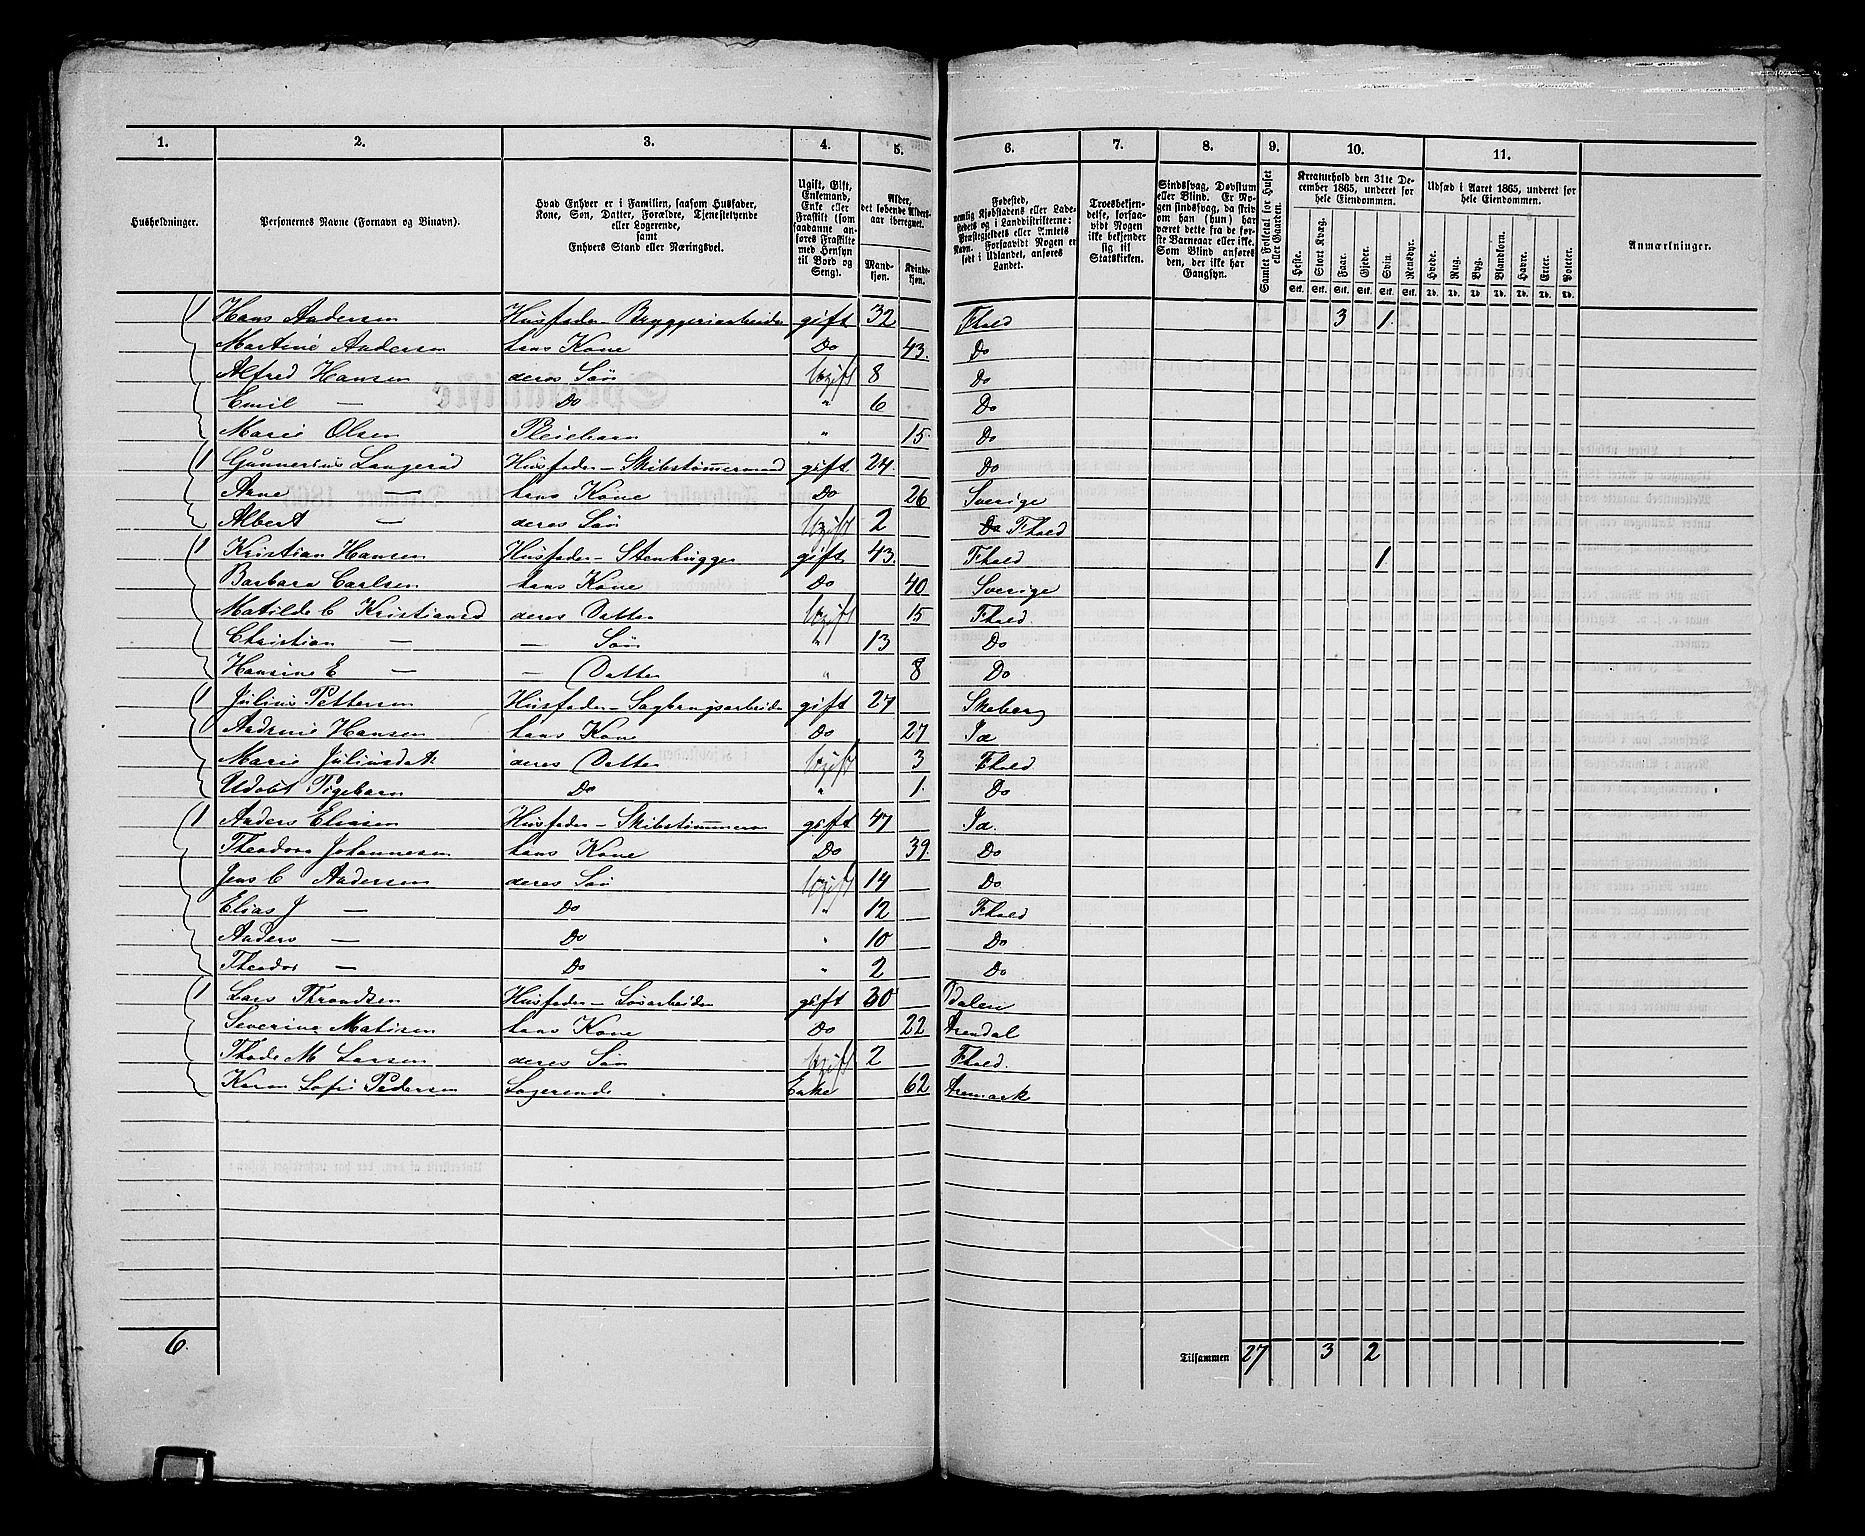 1. 2. 3. 4. 5. 6. 7. 8. 9. 10. 11.
Husholdninger.
Personernes Navne (Fornavn og Binavn).
Hvad Enhver er i Familien, saasom Husfader, Kone, Søn, Datter, Forældre, Tjenestetyende eller Logerende, samt Enhvers Stand eller Næringsvei.
Ugift, Gift, Enkemand, Enke eller Fraskilt (som saadanne anføres Fraskilte med Hensyn til Bord og Seng).
Alder, det løbende Aldersaar iberegnet.
Mandkjøn. Kvindekjøn.
Fødested, nemlig Kjøbstadens eller Ladestedets og i Landdistrikterne: Præstegjeldets eller Amtets Navn. Forsaavidt Nogen er født i Udlandet, anføres Landet.
Troesbekjendelse, forsaavidt Nogen ikke bekjender sig til Statskirken.
Sindssvag, Døvstum eller Blind. Er Nogen sindssvag, da skriv om han (hun) har været dette fra de første Barneaar eller ikke. Som Blind anføres den, der ikke har Gangsyn.
Samlet Folketal for Huset eller Gaarden.
Kreaturhold den 31te December 1865, underet for hele Eiendommen.
Heste. Stort Kvæg. Faar. Gjeder. Svin. Rensdyr.
Stk. Stk. Stk. Stk. Stk. Stk.
Udsæd i Aaret 1865, underet for hele Eiendommen.
Hvede. Rug. Byg. Blandkorn. Havre. Erter. Poteter.
Td. Td. Td. Td. Td. Td. Td.
Anmærkninger.
1 Hans Andersen Husfader Bryggeriarbeider gift 32 Fhald 3 1
Martine Andersen hans Kone Do 43. Do
Alfred Hansen deres Søn Ugift 8 Do
Emil — Do " 6 Do
Marie Olsen Pleiebarn " 15 Do
1 Gunnerius Langerød Husfader – Skibstømmermand gift 24 Do
Anne — hans Kone Do 26 Sverige
Albert — deres Søn Ugift 2 Do Fhald
1 Kristian Hansen Husfader – Stenhugger gift 43. Fhald 1
Barbara Carlsen hans Kone Do 40 Sverige
Matilde C Kristiansd deres Datter Ugift 15 Fhald
Christian — — Søn " 13 Do
Hansine E — — Datter " 8 Do
1 Julius Pettersen Husfader – Sagbrugsarbeider gift 27 Skeberg
Andrine Hansen hans Kone Do 27 Id
Marie Juliusdat. deres Datter Ugift 3 Fhald
Udøbt Pigebarn Do " 1 Do
1 Anders Eliasen Husfader – Skibstømmerm gift 47 Id.
Theodora Johannesen hans Kone Do 39. Do
Jens C Andersen deres Søn Ugift 14 Do
Elias J — Do " 12 Fhald
Anders — Do " 10 Do
Theodor — Do " 2 Do
1 Lars Throndsen Husfader – Løsarbeider gift 30 Odalen
Severine Matisen hans Kone Do 22 Arendal
M Larsen deres Søn Ugift 2 Fhald.
Karen Sofie Pedersen Logerende Enke 62 Aremark
6. Tilsammen 27 3 2